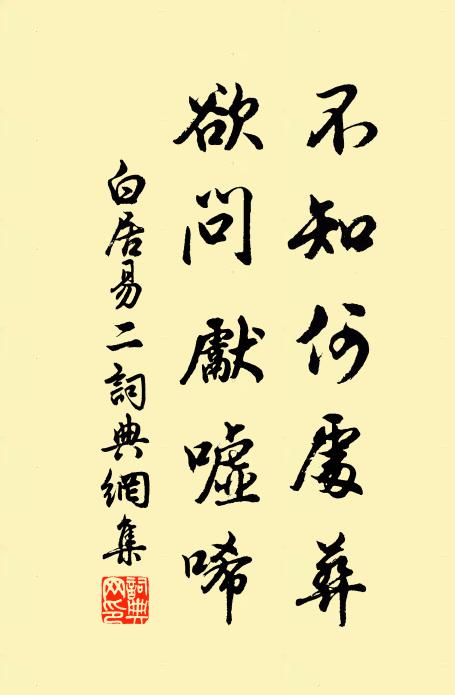 不知何處葬
欲問獻噓唏
白居易二詞典網集
詞典网印